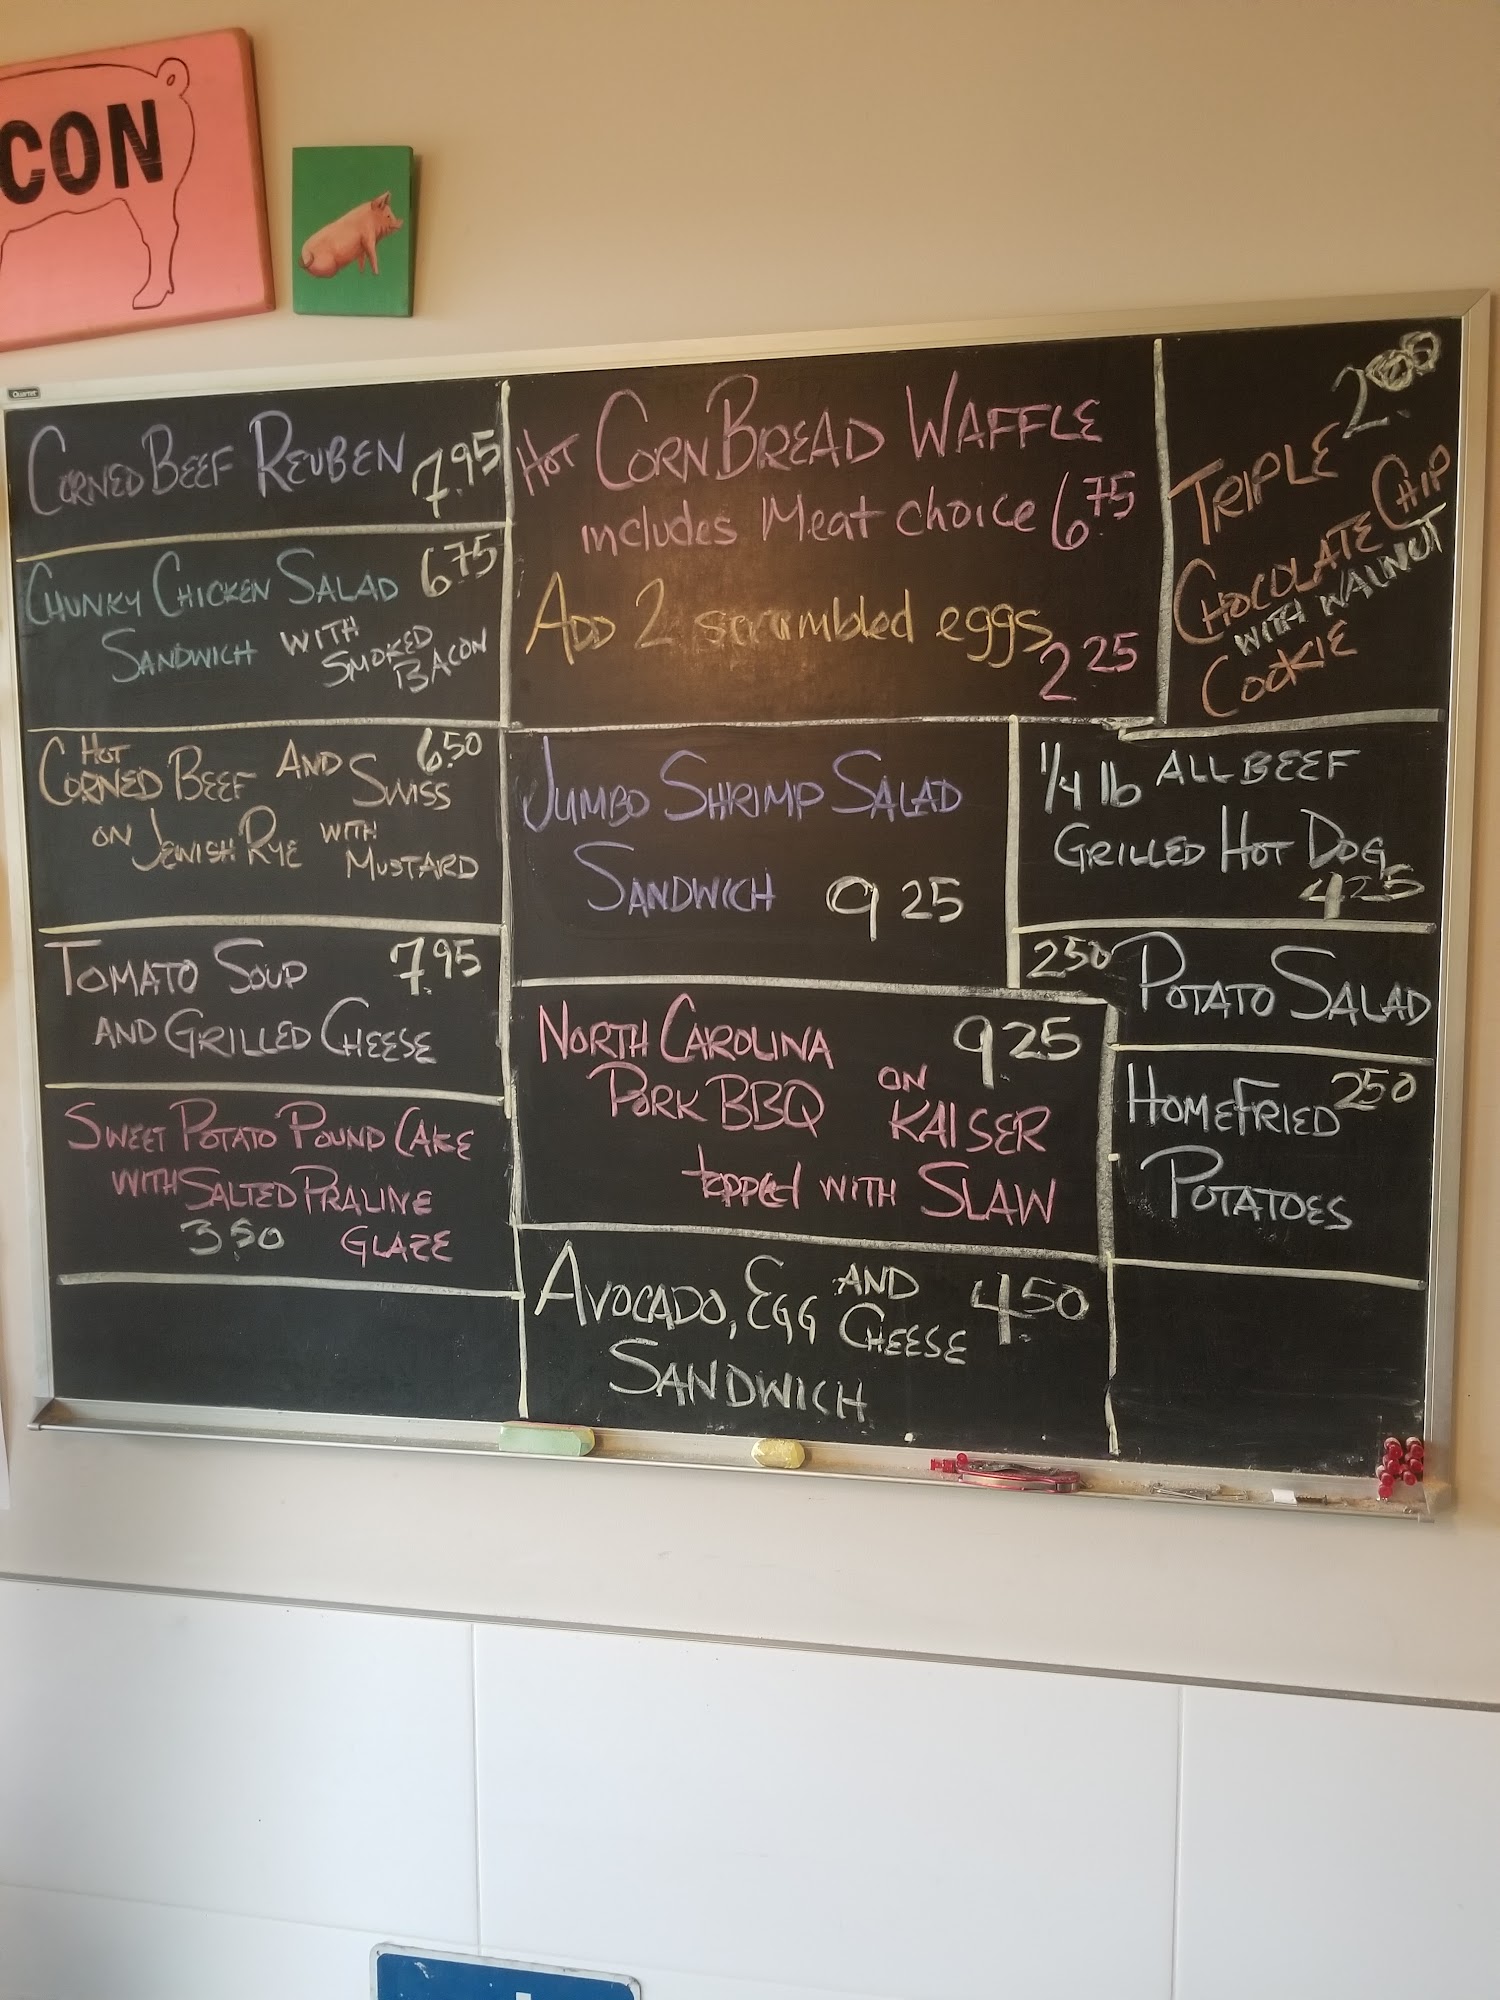 CON
Quartet
CORNED BEEF REUBEN 7.95
CHUNKY CHICKEN SALAD 6.75
SANDWICH WITH SMOKED BACON
HOT 6.50
CORNED BEEF AND SWISS
ON JEWISH RYE WITH MUSTARD
TOMATO SOUP 7.95
AND GRILLED CHEESE
SWEET POTATO POUND CAKE
WITH SALTED PRALINE
3.50 GLAZE
HOT CORN BREAD WAFFLE
includes Meat choice 6.75
ADD 2 scrambled eggs
2 25
JUMBO SHRIMP SALAD
SANDWICH 9 25
NORTH CAROLINA 9 25
PORK BBQ ON KAISER
topped WITH SLAW
AVOCADO, EGG AND CHEESE 4.50
SANDWICH
TRIPLE
CHOCOLATE CHIP
WITH WALNUT
COOKIE
1/4 lb ALL BEEF
GRILLED HOT DOG
4 25
2 50 POTATO SALAD
HOME FRIED 2 50
POTATOES